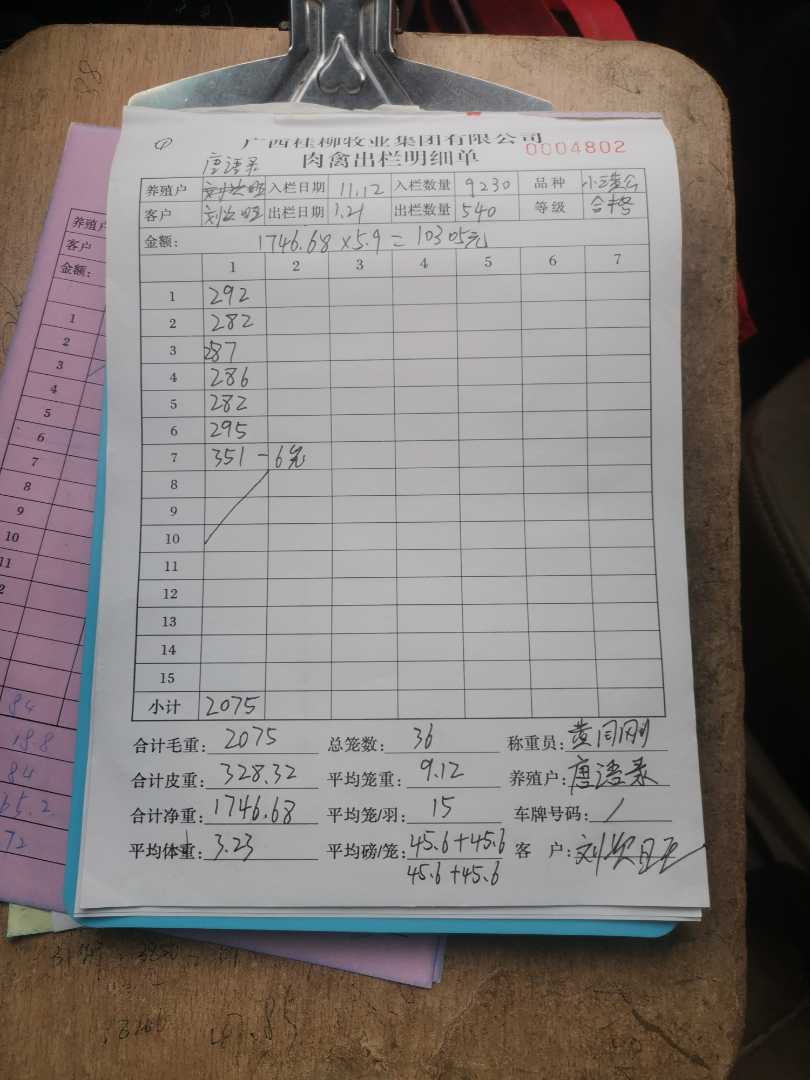 广西桂柳牧业集团有限公司
肉禽出栏明细单 0004802
唐语录
养殖户 入栏日期 11.12 入栏数量 9230 品种
客户 出栏日期 1.21 出栏数量 540 等级 合格
金额: 1746.68 ×5.9 = 10305元
1 2 3 4 5 6 7
1 292
2 282
3 287
4 286
5 282
6 295
7 351 - 6只
8
9
10
11
12
13
14
15
小计 2075
合计毛重: 2075 总笼数: 36 称重员: 黄同刚
合计皮重: 328.32 平均笼重: 9.12 养殖户: 唐语录
合计净重: 1746.68 平均笼/羽: 15 车牌号码: /
平均体重: 3.23 平均磅/笼: 45.6+45.6 客 户:
45.6+45.6
养殖户
客户
金额:
1
2
3
4
5
6
7
8
9
10
11
84
18.8
84
65.2
72